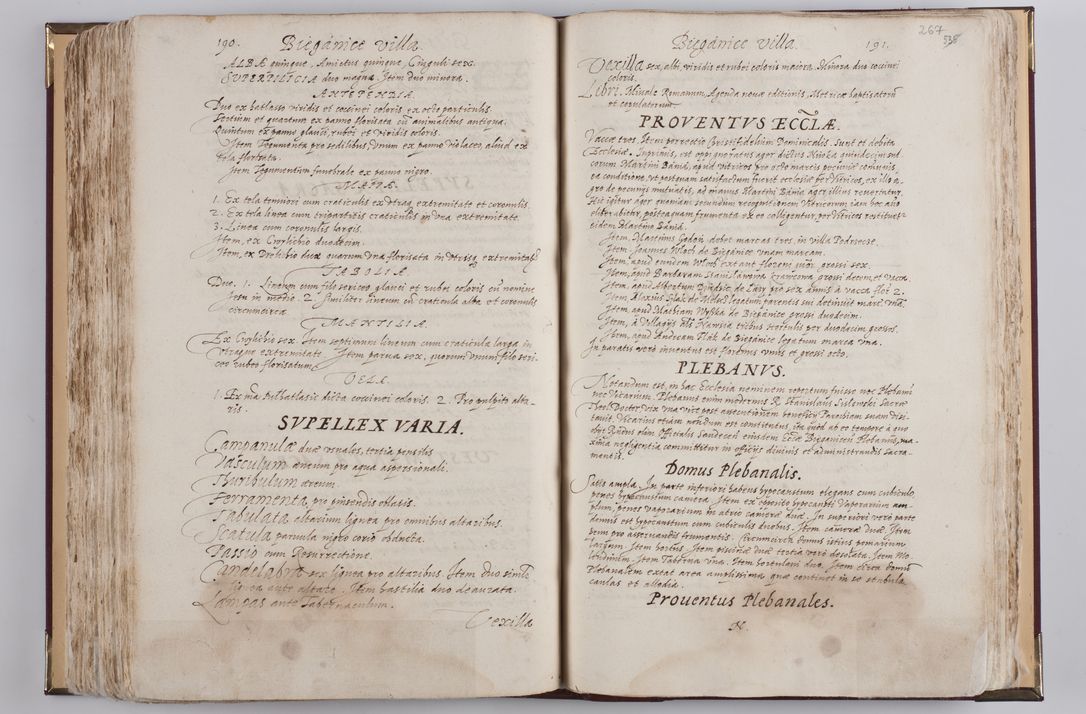 190. Biegánice villa.
ALBÆ quinque, Amictus quinque, Cinguli sex.
SVPERPILICIA duo magna. Item duo minora.
ANTEPENDIA.
Duo ex hatlasso viridis et coccinei coloris, ex octo particulis.
Tertium et quartum ex panno florisata cū animalibus antiqua.
Quintum ex panno glauci, rubri et viridis coloris.
Item Tegumenta pro sedilibus, Vnum ex panno violaceo, aliud ex
tela florisata.
Item Tegumentum funebrale ex panno nigro.
MAPPÆ.
1. Ex tela tenuiori cum craticulis ex vtraq extremitate et coronulis.
2. Ex tela linea cum tripartitis craticulis in vna extremitate.
3. Linea cum coronulis largis.
Item, ex Cnylichio duodecim.
Item, ex Drelichio duæ quarum vna florisata in vtrisq extremitatib
TABOLIA.
Duo. 1. Lineum cum filo sericeo glauci et rubri coloris cū nomine
Iesu in medio. 2. Similiter lineum cū craticula alba et coronulis
circumcirca.
MANTILIA.
Ex Cnylichio sex. Item septimum lineum cum craticula larga in
vtraque extremitate. Item parua sex, quorum vnum filo seri-
ceo rubro florisatum.
VELA.
1. Ex materia hatlassic dicta coccinei coloris. 2. Pro pulpito alta-
ris.
SVPELLEX VARIA.
Campanulæ duæ vsuales, tertia pensilis
Vasculum æneum pro aqua aspersionali.
Thuribulum æreum.
Ferramenta pro pinsendis oblatis.
Tabulata altarium lignea pro omnibus altaribus.
Scatula paruula nigro corio obducta.
Passio cum Resurrectione.
Candelabra sex lignea pro altaribus. Item duo simili
lignea ante altare. Item hastilia duo deaurata.
Lampas ante Tabernaculum.
Vexilla

267
538
Biegánice villa. 191.
Vexilla sex, albi, viridis et rubri coloris maiora. Minora duo coccinei
coloris.
Libri. Missale Romanum, Agenda nouæ editionis, Metricæ baptisatorū
et copulatorum.
PROVENTVS ECCLÆ.
Vaccæ tres. Item porrectio Christifidelium Dominicalis. Sunt et debita
Ecclesiæ. Inprimis, est oppignoratus ager dictus Niwka quindecim sul-
corum Martini Bánia, apud vitricos pro octo marcis pecuniæ communis,
ea conditione, vt postquam satisfactum fuerit ecclesiæ per Vitricos, ex illo a-
gro de pecunijs mutuatis, ad manus Martini Bánia ager illius reuertatur.
Hic igitur ager quoniam secundum recognitionem Vitricorum, iam hoc año
eliberabitur, posteaquam frumenta ex eo colligentur, per Vitricos restituet
eidem Martino Bánia.
Item, Martinus Godoń debet marcas tres, in villa Podrzecze.
Item, Ioannes Włoch de Biegánice vnam marcam.
Item, apud eundem Włoch extant florenī quōr grossi sex.
Item, apud Barbaram Stanisławowa Krawcowa, grossi decem, et vacca
Item, apud Albertum Dyndsic, de Lázy pro sex annis à vacca flor 2.
Item Alexius Ilak de legatum parentis sui detinuit marcā vnā.
Item, apud Mathiam Wyszka de Biegánice grossi duodecim.
Item, à Villagijs tribus hortulis per duodecim grossos.
Item, apud Andream Ilák de Biegánice legatum marca vna.
In paratis verò inuentus est florenus vnus et grossi octo.
PLEBANVS.
Notandum est, in hac Ecclesia neminem repertum fuisse nec Plebanū
nec Vicarium. Plebanus enim modernus R. Stanislaus Sislowski Sacræ
Theol. Doctor, vix vna vice post assecutionem beneficij Parochiam suam visi-
tauit. Vicarius etiam nondum est constitutus, ita quod ab eo tempore à quo
obijt Rndus olim Officialis Sandecen eiusdem Ecclæ Biegonicen Plebanus, ma-
xima negligentia committitur in officijs diuinis et administrandis sacra-
mentis.
Domus Plebanalis.
Satis ampla. In parte inferiori habens hypocaustum elegans cum cubiculo,
penes hypocaustum camera. Item ex opposito hypocausti Vaporarium am-
plum, penes vaporarium in atrio cameræ duæ. In superiori verò parte
domus est hypocaustum cum cubiculis duobus. Item cameræ duæ. Item
pro asseruandis frumentis. Circumcirca domus istius pomarium
largum. Item hortus. Item piscinæ duæ tertia verò desolata. Item Mo-
lendinum. Item Taberna vna. Item hortulani duo. Item circa domū
Plebanalem extat area amplissima quæ continet in se stabula
caulas et allodia.
Prouentus Plebanales.
N.